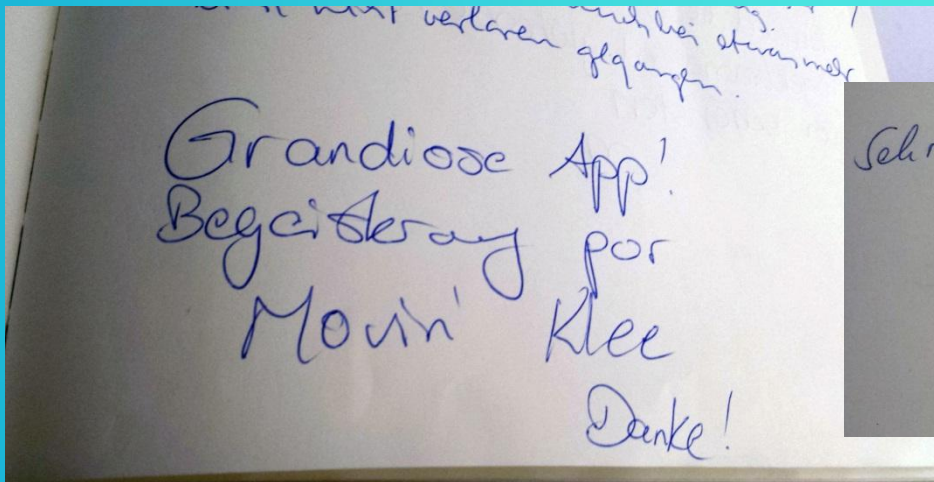 nicht verloren
etwas mehr
gegangen.
Grandiose App!
Begeisterung por
Movin' Klee
Danke!
Sehr